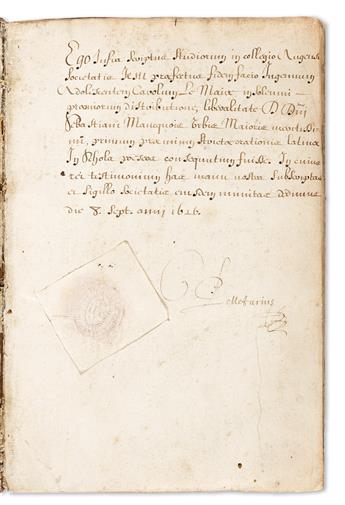 Ego Infra scriptus Studiorum in collegio Augensi
Societatis Iesu præfectus fidem facio Ingenuum
Adolescentem Carolum Le Maire in solemni
præmiorum distributione, liberalitate D. Dni
Sebastiani urbis Maioris meritissi-
mi, primum præmium strictæ orationis latinæ
In schola poeseos consequutum fuisse. In cuius
rei testimonium has manu nostra subscriptas
et sigillo Societatis eiusdem munitas dedimus
die 8. Sept. anni